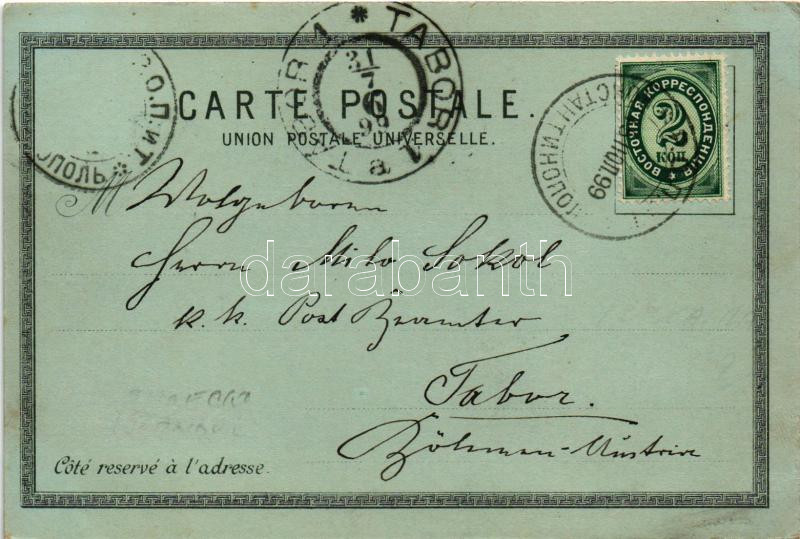 CARTE POSTALE.
UNION POSTALE UNIVERSELLE.
TABOR 1 * TABOR 1
31
7
99
a
Р.О.П.и Т.
ПОЛЬ *
КОНСТАНТИНОПО
ИЮЛ 99
ВОСТОЧНАЯ КОРРЕСПОНДЕНЦІЯ
2
КОП.
M
Wolgeboren
Herrn Milo Sokol
k. k. Post Beamter
Tabor.
Böhmen-Austrive
Côté reservé à l'adresse.
darabanth